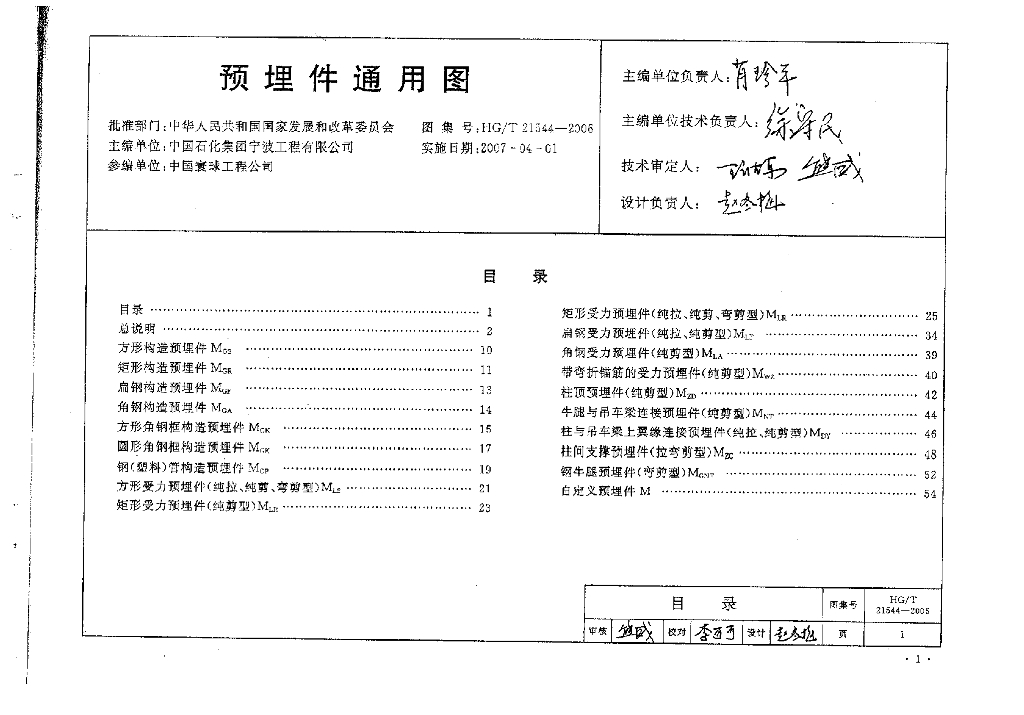 预埋件通用图
批准部门:中华人民共和国国家发展和改革委员会
主编单位:中国石化集团宁波工程有限公司
参编单位:中国寰球工程公司
图 集 号:HG/T 21544—2006
实施日期:2007-04-01
主编单位负责人:
主编单位技术负责人:
技术审定人:
设计负责人:
目 录
目录 …… 1
总说明 …… 2
方形构造预埋件 MGS …… 10
矩形构造预埋件 MGR …… 11
扁钢构造预埋件 MGF …… 13
角钢构造预埋件 MGA …… 14
方形角钢框构造预埋件 MGK …… 15
圆形角钢框构造预埋件 MGK …… 17
钢(塑料)管构造预埋件 MGP …… 19
方形受力预埋件(纯拉、纯剪、弯剪型)MLS …… 21
矩形受力预埋件(纯剪型)MLR …… 23
矩形受力预埋件(纯拉、纯剪、弯剪型)MLR …… 25
扁钢受力预埋件(纯拉、纯剪型)MLF …… 34
角钢受力预埋件(纯剪型)MLA …… 39
带弯折锚筋的受力预埋件(纯剪型)MWZ …… 40
柱顶预埋件(纯剪型)MZD …… 42
牛腿与吊车梁连接预埋件(纯剪型)MNT …… 44
柱与吊车梁上翼缘连接预埋件(纯拉、纯剪型)MDY …… 46
柱间支撑预埋件(拉弯剪型)MZC …… 48
钢牛腿预埋件(弯剪型)MGNT …… 52
自定义预埋件 M …… 54
目 录
图集号
HG/T
21544—2006
审核
校对
设计
页
1
·1·